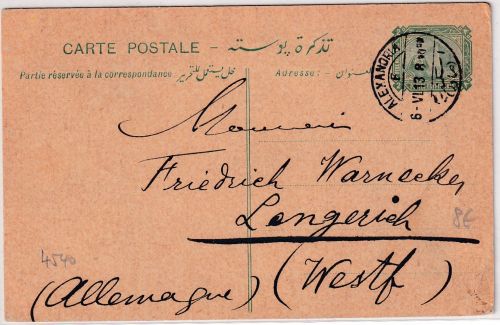 CARTE POSTALE - تذكرة پوسته
Partie réservée à la correspondance محل يستعمل للتحرير
Adresse: عنوان
ALEXANDRIA
6-VI 13
Monsieur
Friedrich Warnecke,
Lengerich
8E
4540
(Allemagne) (Westf)